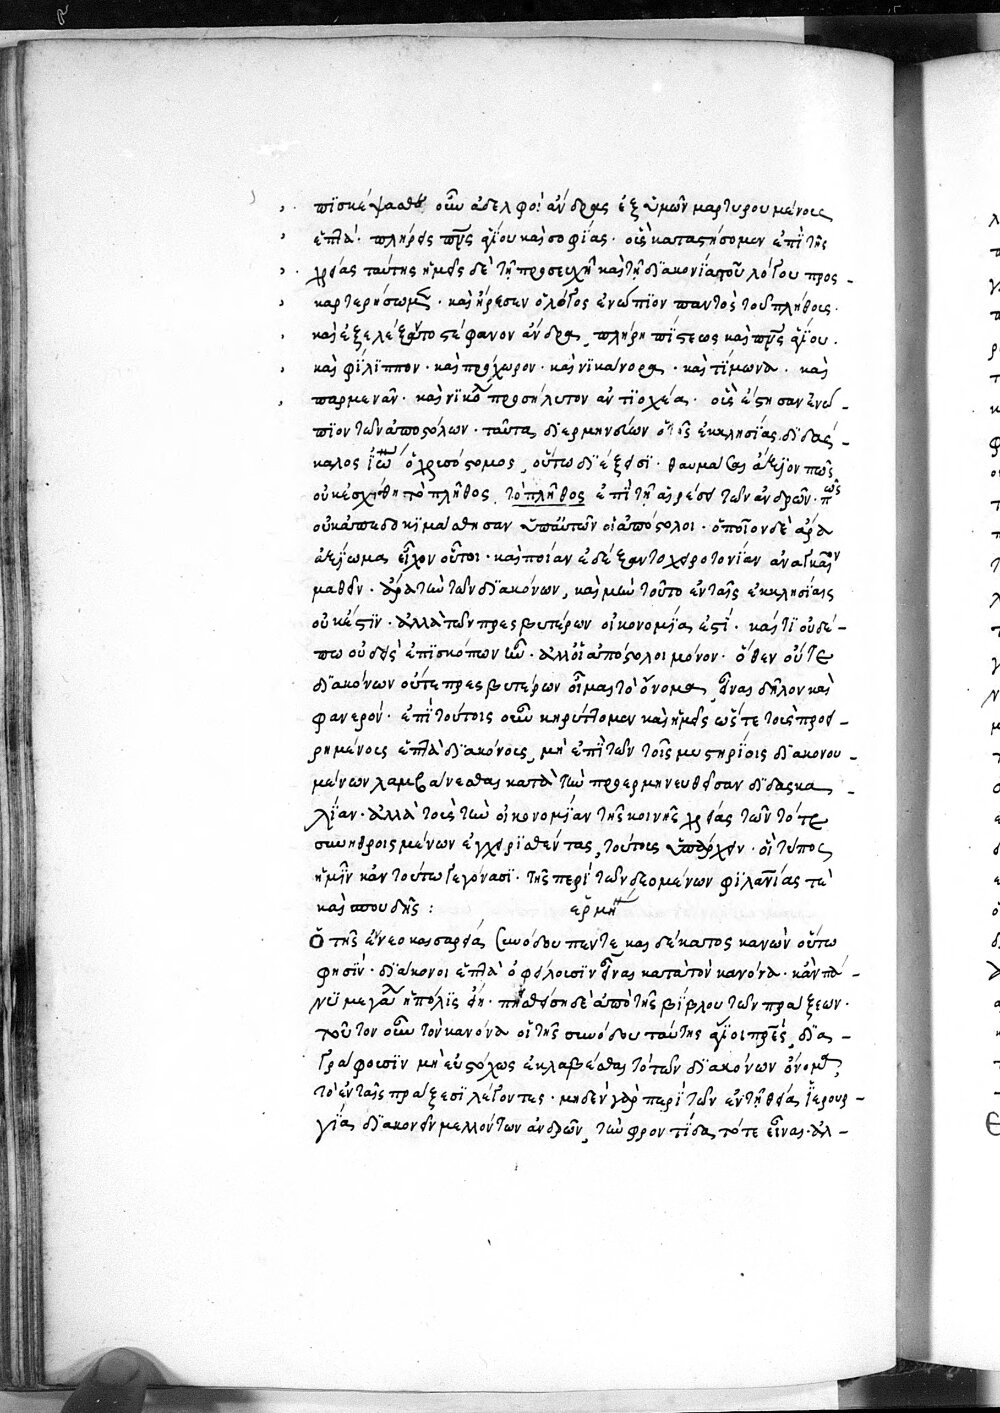 πϊσκέψασθε οὖν ἀδελφοὶ ἄνδρας ἐξ ὑμῶν μαρτυρουμένους
ἑπτὰ· πλήρεις πν̅ς ἁγίου καὶ σοφίας· οὓς καταστήσομεν ἐπὶ τῆς
χρείας ταύτης ἡμεῖς δὲ τῇ προσευχῇ καὶ τῇ διακονίᾳ τοῦ λόγου προσ-
καρτερήσωμεν· καὶ ἤρεσεν ὁ λόγος ἐνώπϊον παντὸς τοῦ πλήθους·
καὶ ἐξελέξαντο στέφανον ἄνδρα, πλήρη πίστεως καὶ πν̅ς ἁγίου·
καὶ φίλιππον· καὶ πρόχωρον· καὶ νικάνορα· καὶ τίμωνα· καὶ
παρμενᾶν· καὶ νικόλ προσήλυτον ἀντϊοχέα· οὓς ἔστησαν ἐνώ-
πϊον τῶν ἀποστόλων· ταῦτα διερμηνεύων ὁ τῆς ἐκκλησίας διδάσ-
καλος ἰω ὁ χρυσόστομος, οὕτω διέξεισι· θαυμάσαι ἄξϊον πῶς
οὐκ ἐσχίσθη τὸ πλῆθος, τὸ πλῆθος ἐπὶ τῇ αἱρέσει τῶν ἀνδρῶν· πῶς
οὐκ ἀπεδοκιμάσθησαν ὑπ' αὐτῶν οἱ ἀπόστολοι· ὁποῖον δὲ ἄρα
ἀξίωμα εἶχον οὗτοι· καὶ ποίαν ἐδέξαντο χειροτονίαν ἀναγκαῖον
μαθεῖν· ἆρα τὴν τῶν διακόνων, καὶ μὴν τοῦτο ἐν ταῖς ἐκκλησίαις
οὐκ ἔστιν· ἀλλὰ τῶν πρεσβυτέρων οἰκονομία ἐστί· καίτϊ οὐδέ-
πω οὐδεὶς ἐπίσκοπων ἦν· ἀλλ' οἱ ἀπόστολοι μόνον· ὅθεν οὔτε
διακόνων οὔτε πρεσβυτέρων οἶμαι τὸ ὄνομα, εἶναι δῆλον καὶ
φανερόν· ἐπὶ τούτοις οὖν κηρύττομεν καὶ ἡμεῖς ὥστε τοὺς προει-
ρημένους ἑπτὰ διακόνους, μὴ ἐπὶ τῶν τοῖς μυστηρίοις διακονου-
μένων λαμβάνεσθαι κατὰ τὴν προερμηνευθεῖσαν διδασκα-
λίαν· ἀλλὰ τοὺς τὴν οἰκονομίαν τῆς κοινῆς χρείας τῶν τότε
συνηθροισμένων ἐγχειρισθέντας, τούτους ὑπάρχειν· οἳ τύπος
ἡμῖν κἂν τούτω γεγόνασϊ· τῆς περὶ τῶν δεομένων φιλανίας τὲ
καὶ σπουδῆς: ἑρμη
Ὁ τῆς ἐν νεοκαισαρείᾳ συνόδου πεντεκαιδέκατος κανὼν οὕτω
φησίν· διάκονοι ἑπτὰ ὀφείλουσιν εἶναι κατὰ τὸν κανόνα· κἂν πά-
νϋ μεγάλ ἡ πόλϊς εἴη· πεισθείση δὲ ἀπὸ τῆς βίβλου τῶν πράξεων·
τοῦτον οὖν τὸν κανόνα οἱ τῆς συνόδου ταύτης ἅγιοι πρε̅ς, δϊα-
γράφουσϊν μὴ εὐστόχως ἐκλαβέσθαι τὸ τῶν διακόνων ὄνομα,
τὸ ἐν ταῖς πράξεσϊ λέγοντες· μηδὲν γὰρ περὶ τῶν ἐν τῇ θείᾳ ἱερουρ-
γίᾳ διακονεῖν μελλόντων ἀνδρῶν, τὴν φροντίδα τότε εἶναι· ἀλ-